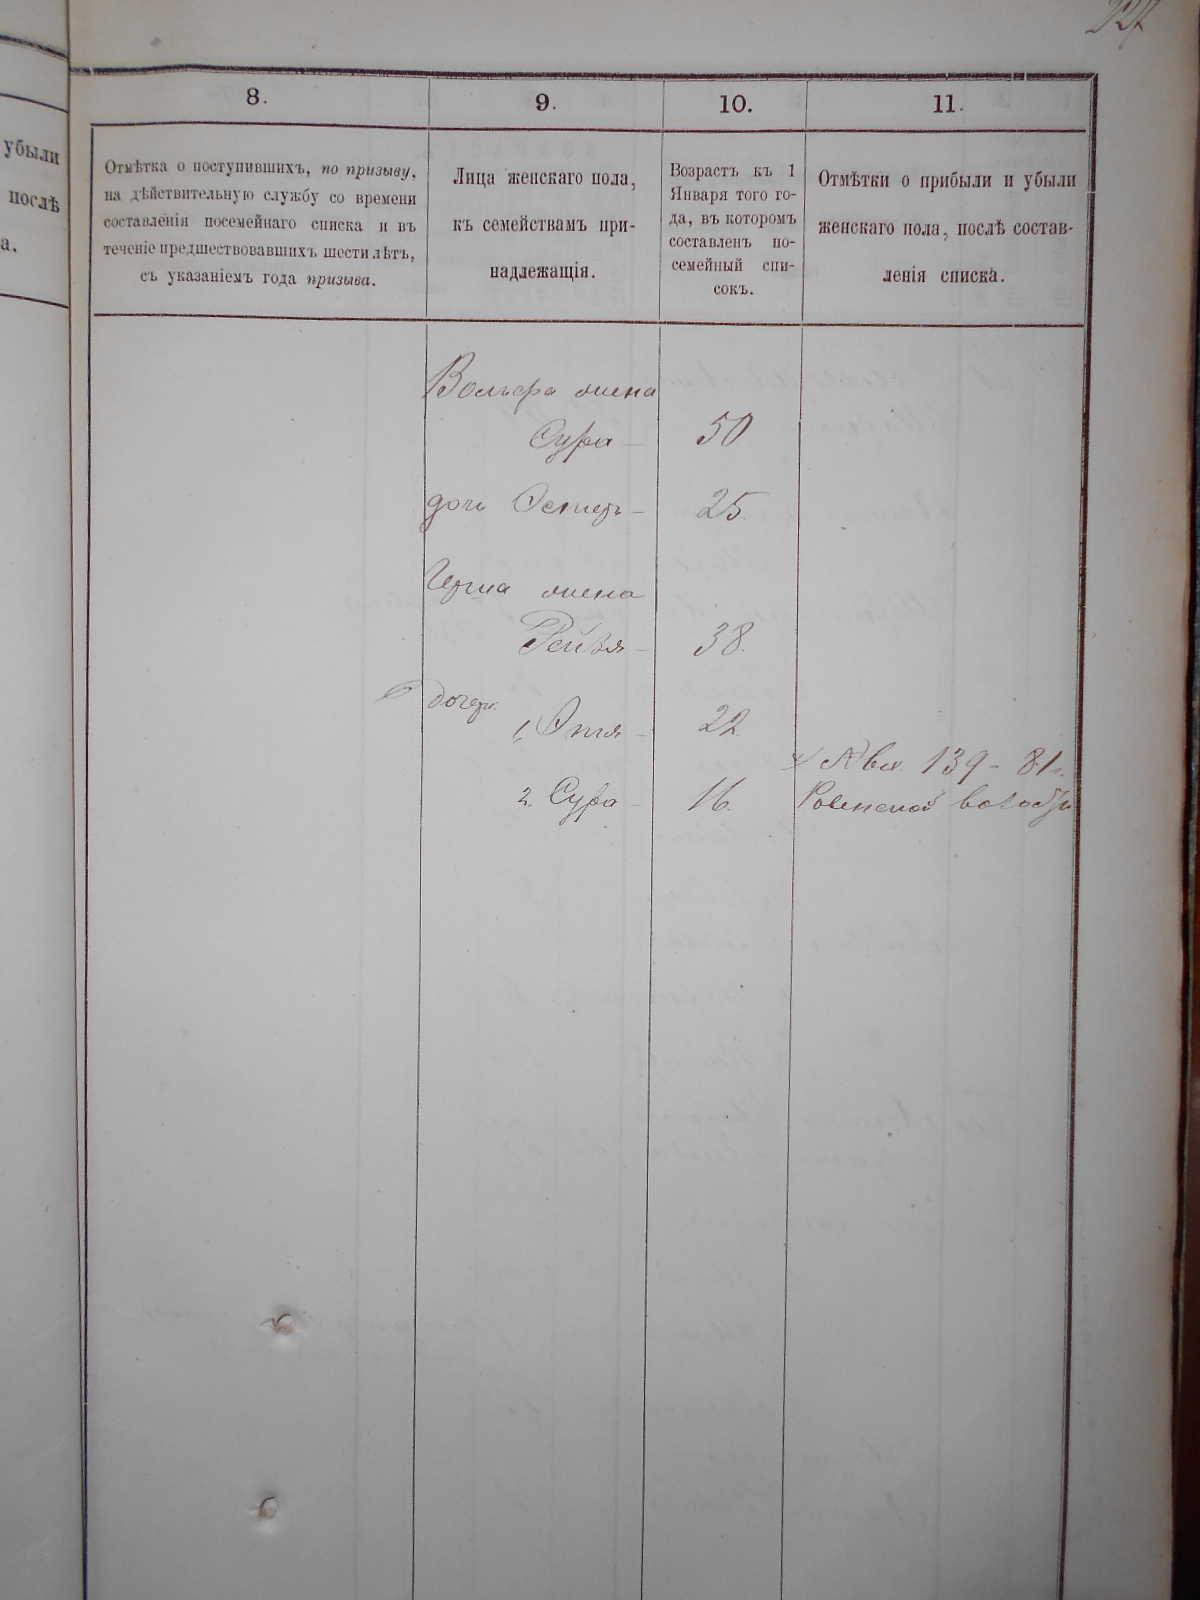 227
убыли
послѣ
а.
8.
9.
10.
11.
Отмѣтка о поступившихъ, по призыву,
на дѣйствительную службу со времени
составленія посемейнаго списка и въ
теченіе предшествовавшихъ шести лѣтъ,
съ указаніемъ года призыва.
Лица женскаго пола,
къ семействамъ при-
надлежащія.
Возрастъ къ 1
Января того го-
да, въ которомъ
составленъ по-
семейный спи-
сокъ.
Отмѣтки о прибыли и убыли
женскаго пола, послѣ состав-
ленія списка.
Вольфа жена
Сура — 50
дочь Эстеръ — 25.
Герша жена
Рейзя — 38.
дочери
1, — 22.
2. Сура — 16.
139 – 81 г.